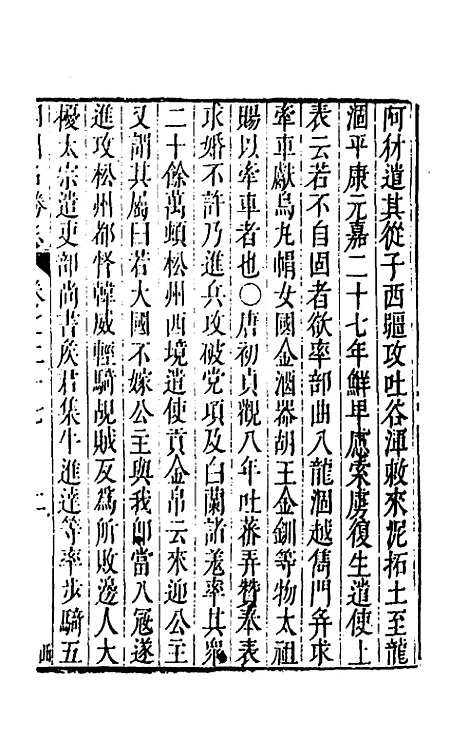 阿犲遣其從子西疆攻吐谷渾敕來泥拓土至龍
涸平康元嘉二十七年鮮卑慮索虜復生遣使上
表云若不自固者欲率部曲入龍涸越嶲門并求
牽車獻烏丸帽女國金酒器胡王金釧等物太祖
賜以牽車者也〇唐初貞觀八年吐蕃弄贊奉表
求婚不許乃進兵攻破党項及白蘭諸羗率其衆
二十餘萬頓松州西境遣使貢金帛云來迎公主
又謂其屬曰若大國不嫁公主與我卽當入冦遂
進攻松州都督韓威輕騎覘賊反爲所敗邊人大
擾太宗遣吏部尚書矦君集牛進達等率步騎五
卷之二十七